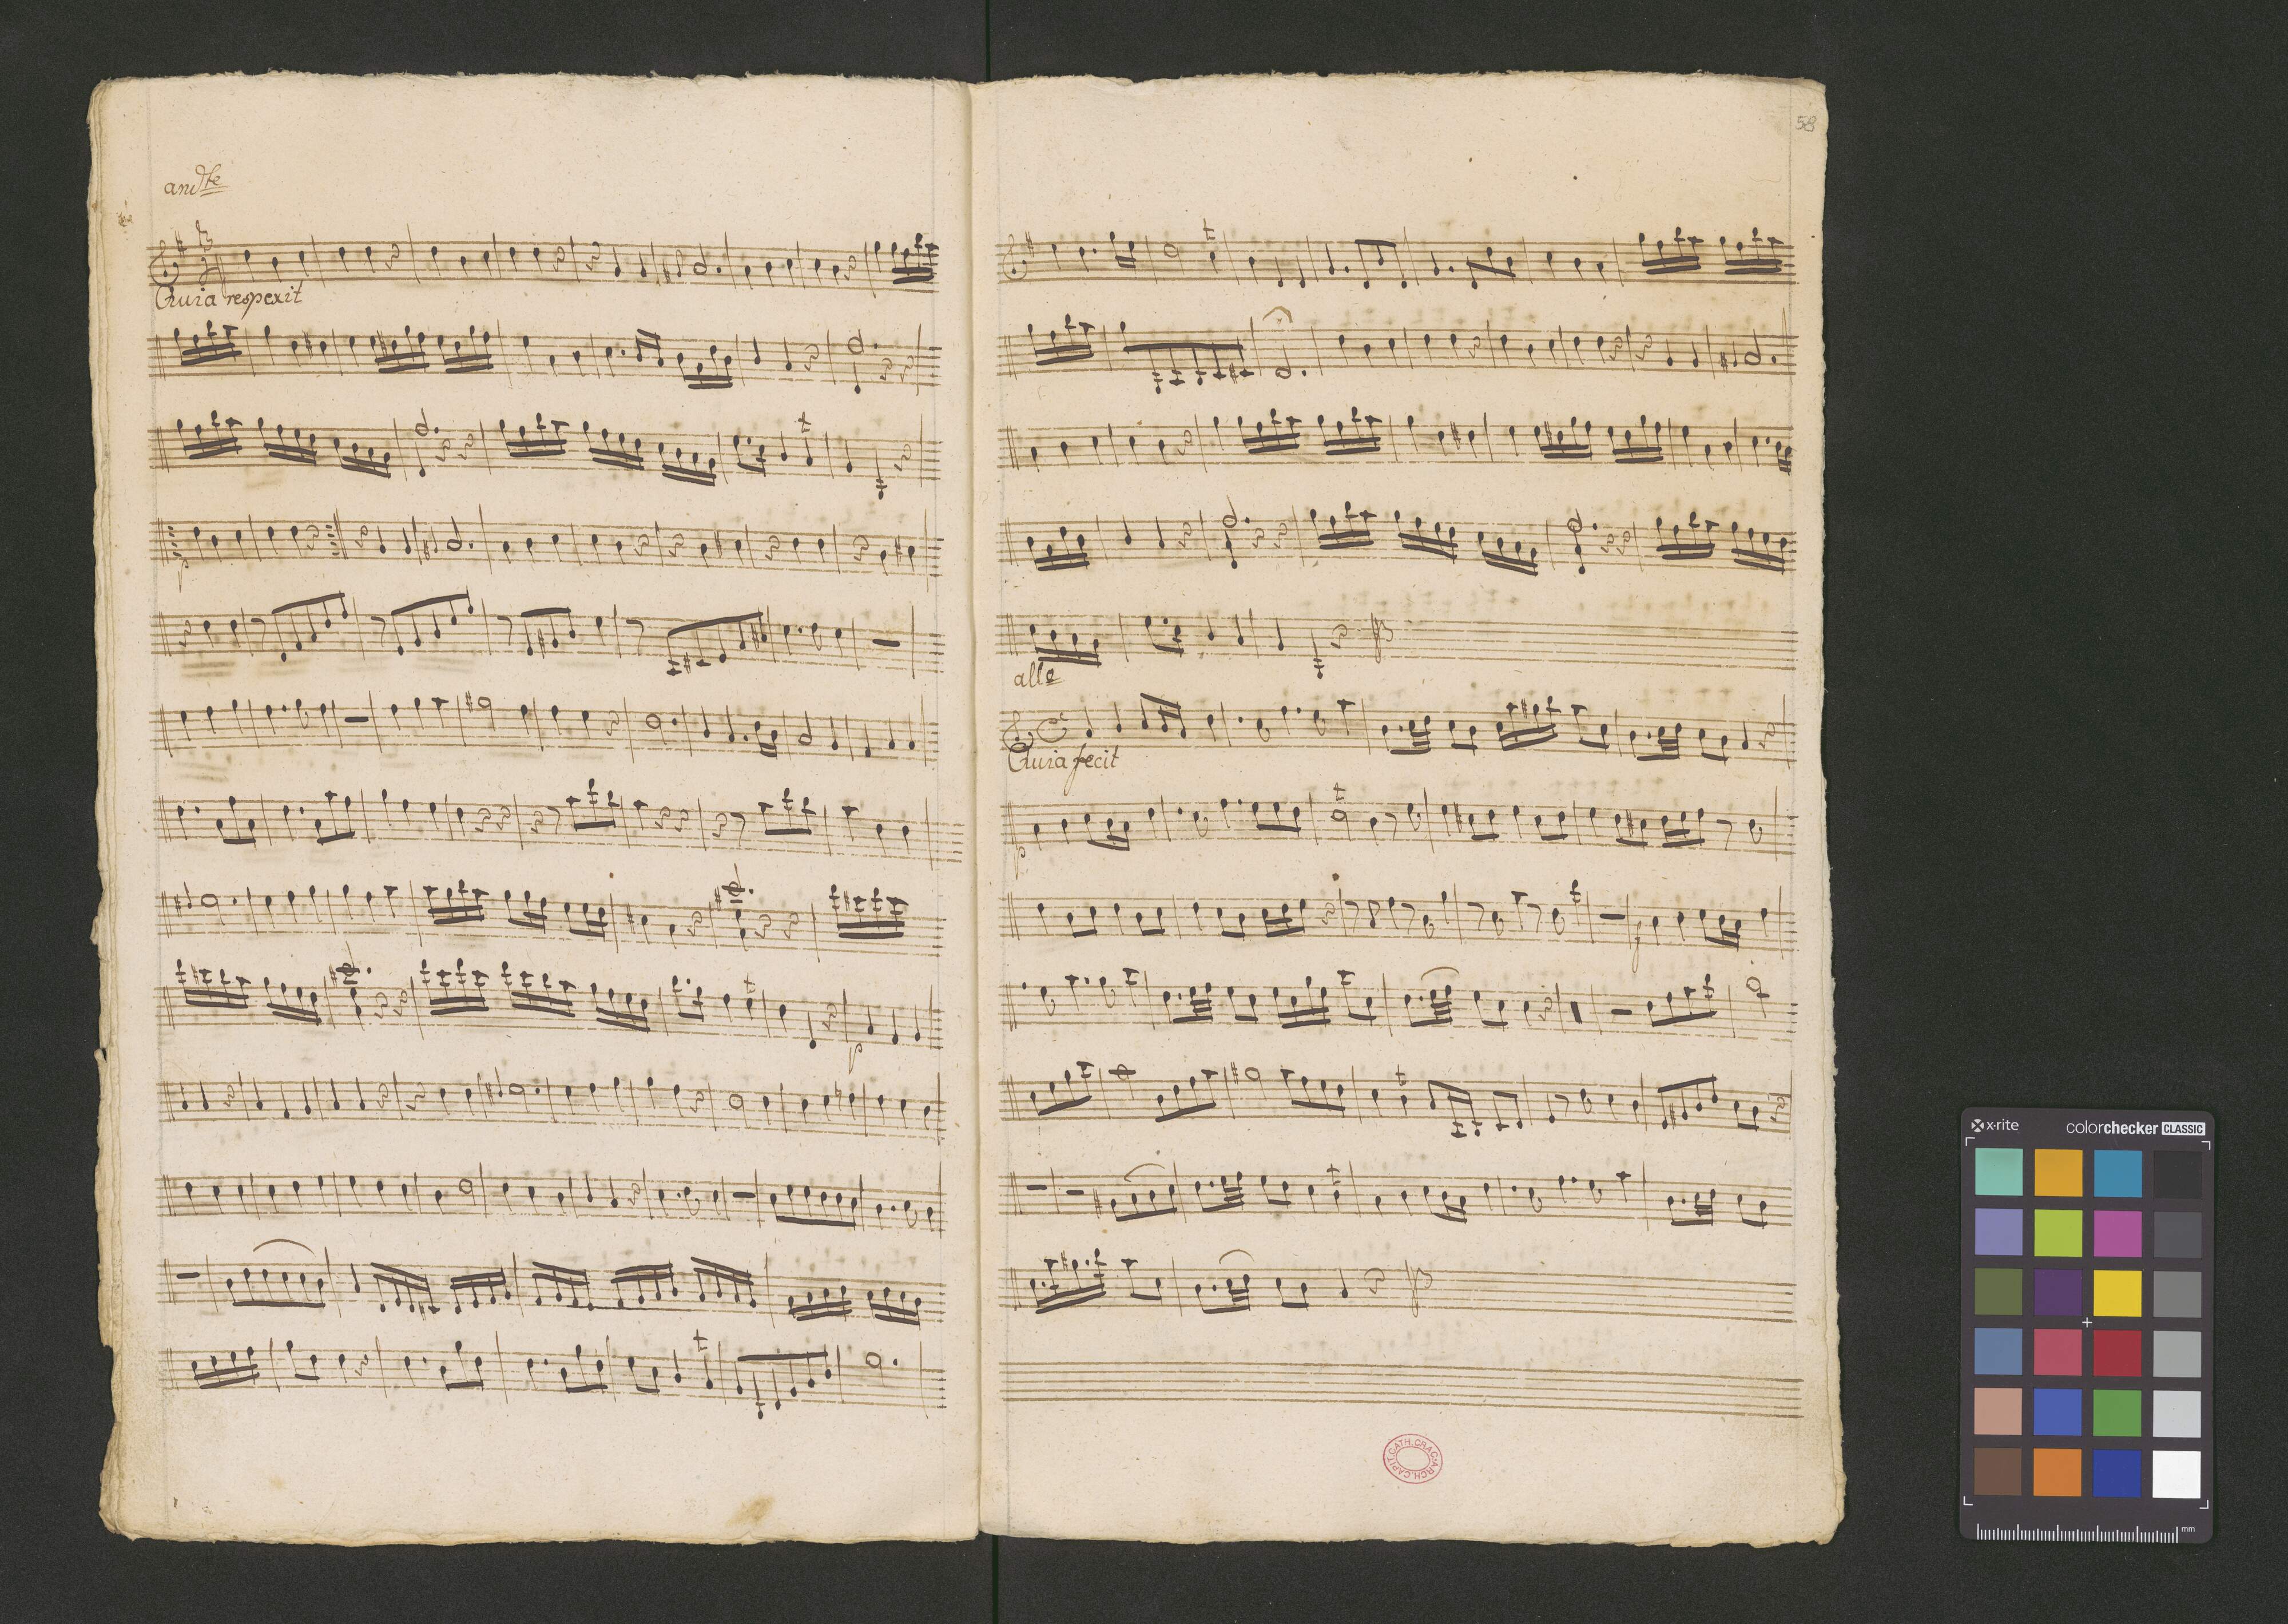 andte
Quia respexit
p
p
58
alle
Quia fecit
p
f
CAPIT. CATH. CRAC. ARCH.
x-rite
colorchecker CLASSIC
mm